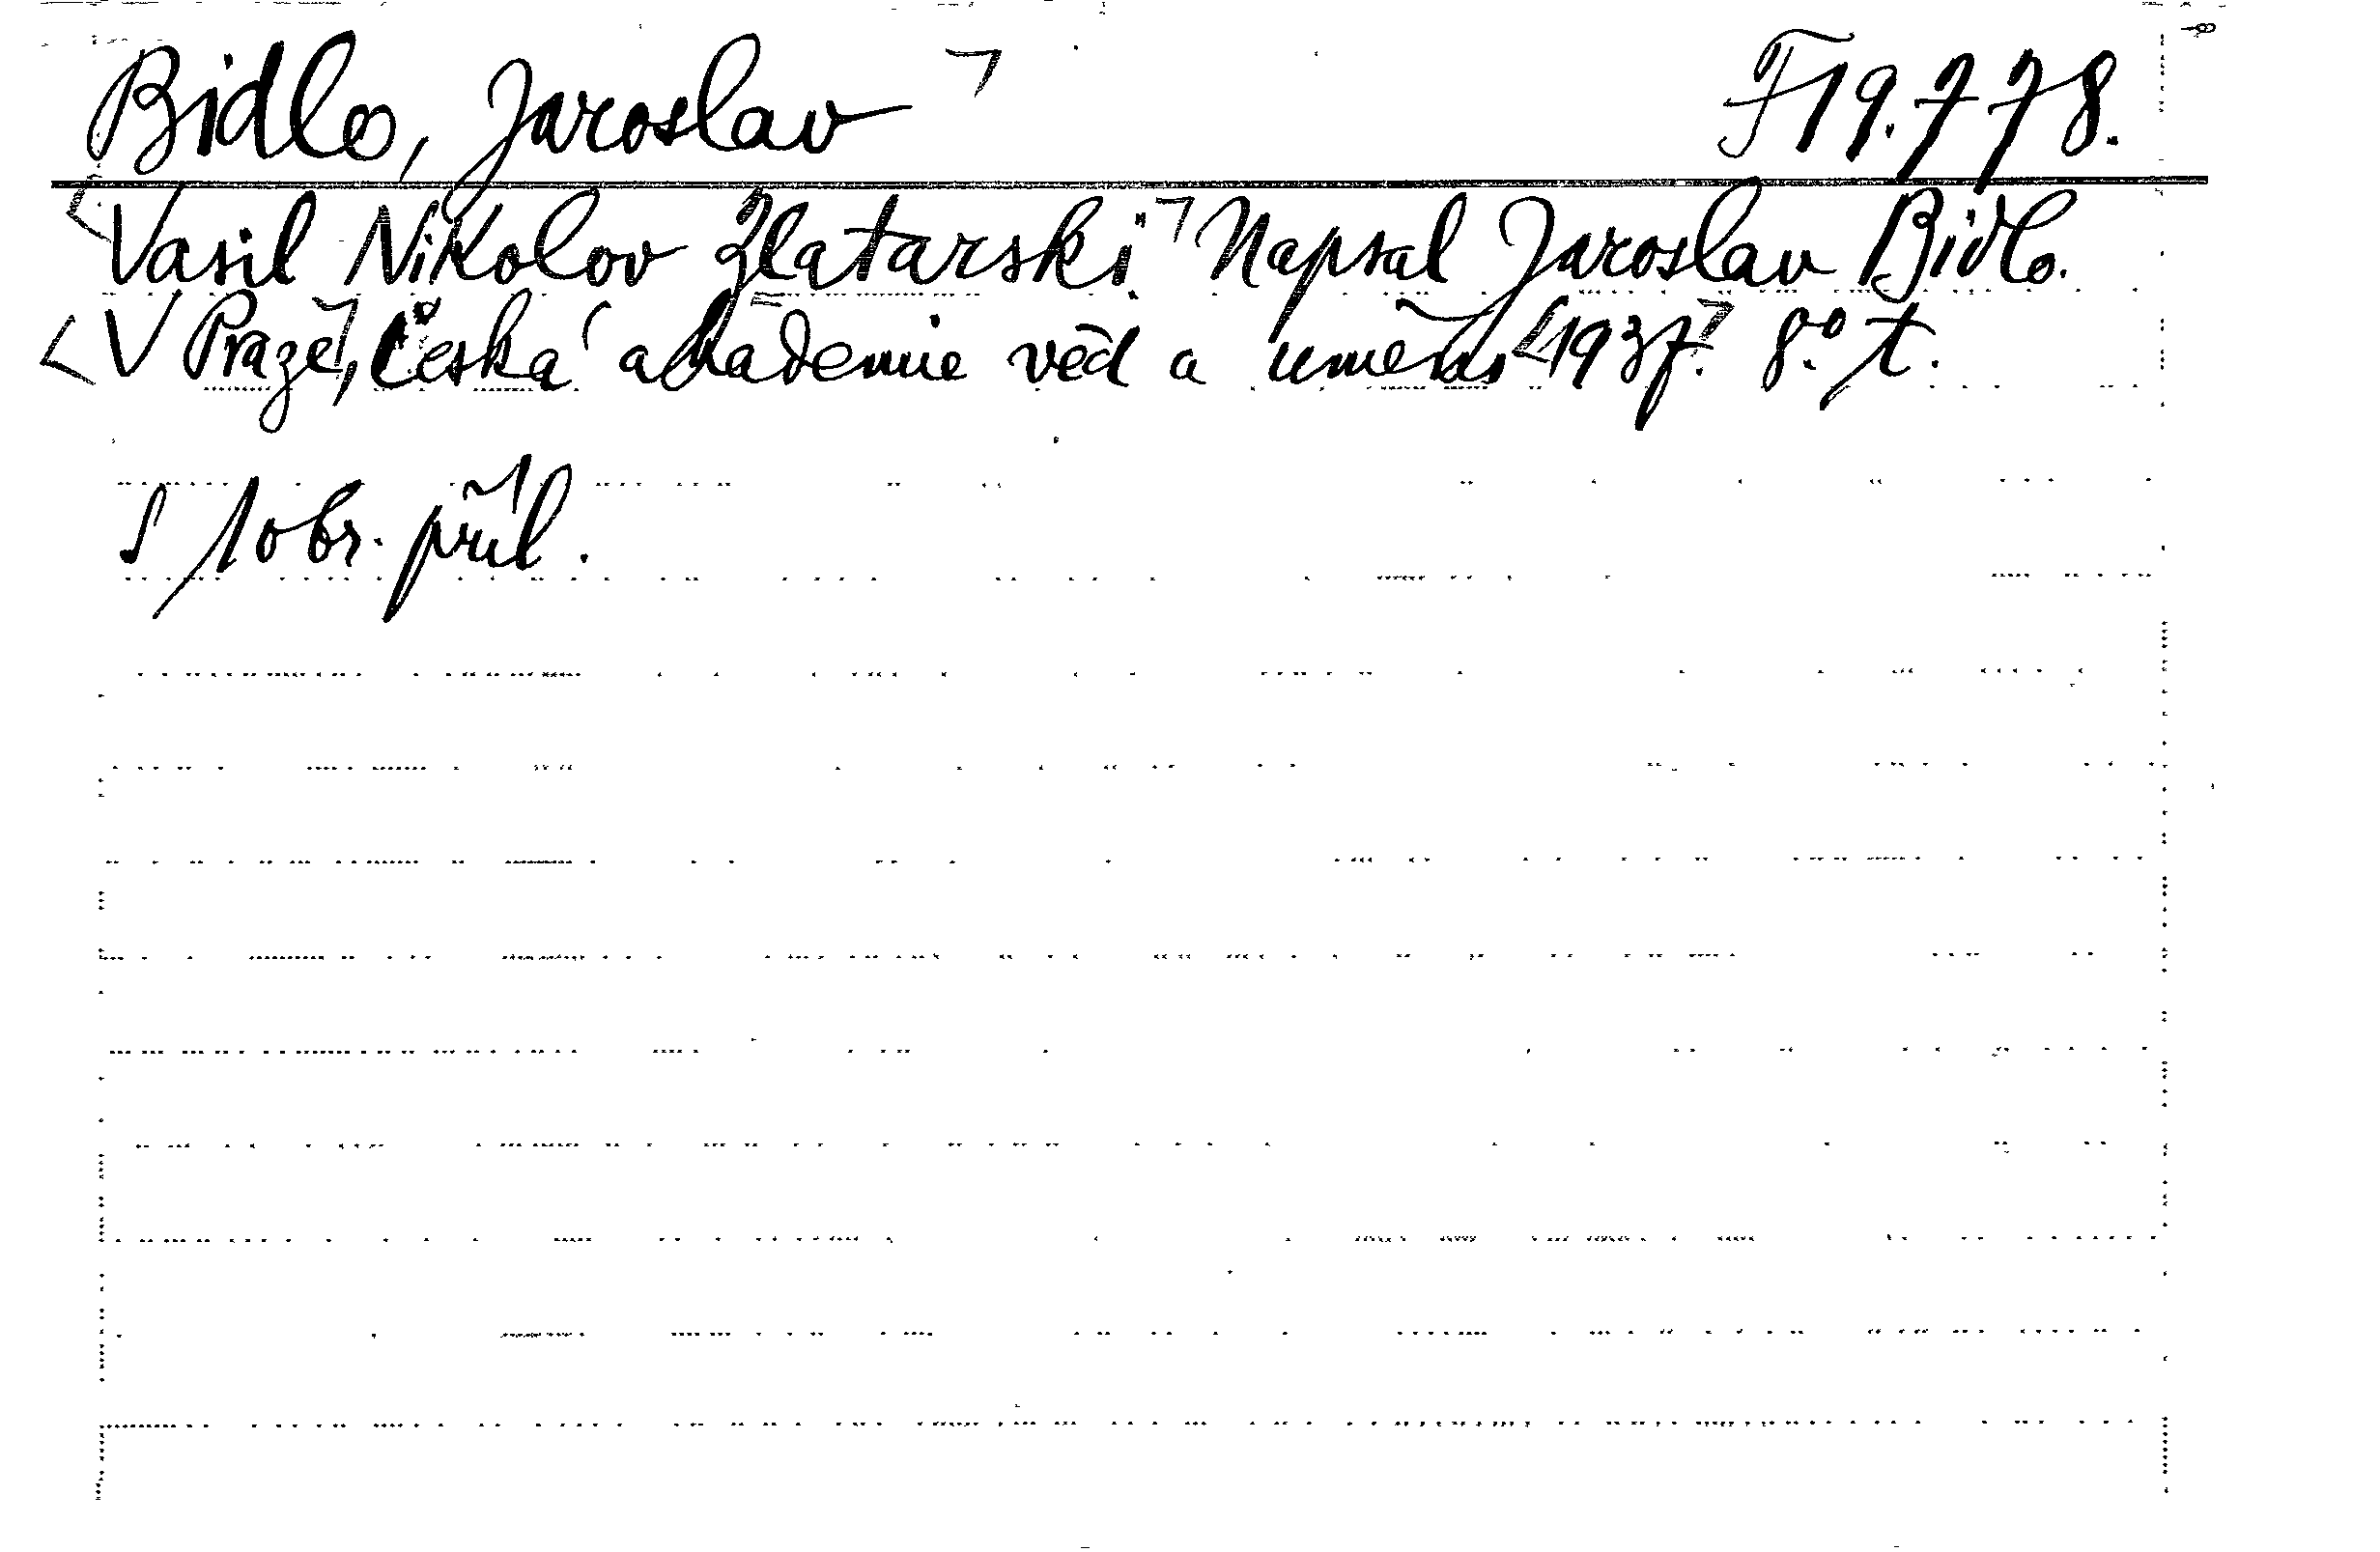 Bidlo, Jaroslav F19.778.
Vasil Nikolov Zlatarski. Napsal Jaroslav Bidlo.
V Praze, Česká akademie věd a umění 1937. 8.° t.
S 1 obr. příl.